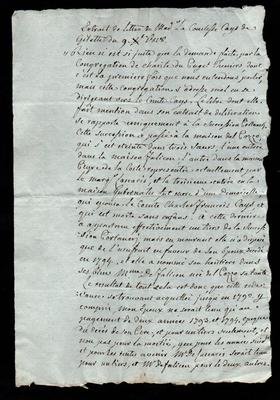 Extrait de lettre de Mad.e la Comtesse Cays de
Gilette du 9 X.bre
Rien n'est si juste que la demande faite par la
Congregation de charité du Puget Theniers dont
c'est la premiere fois que nous entendons parler,
mais cette congregation s'adresse mal en se
dirigeant vers le Comte Cays. Le Sr. dont elle
fait mention dans son extrait de délibération
se rapporte uniquement à la succession
Cette succession a passé à la maison del Pozzo
qui s'est éteinte dans trois sœurs, l'une entrée
dans la maison Falicon, l'autre dans la maison
representée actuellement par
le marq. et la troisieme entrée dans la
maison mere d'une demoiselle
qui épousa le Comte Charles François Cays, et
qui est morte sans enfans. A cette derniere
a appartenu effectivement un tiers de la
mais en mourant elle n'a disposé
que de l'usufruit en faveur de son Epoux décédé
en 1794, et elle a nommé son heritiere dans
ses biens Mme de Falicon née del Pozzo sa tante.
Le resultat de tout cela est donc que cette redevance
se trouvant acquittée jusqu'en 1792 y
compris, mon époux ne serait tenu qu'au
payement de deux années 1793 et 1794, époque
du décès de son Pere, et pour un tiers seulement, et
non pas pour la moitié, que pour les années
et pour les tems avenir Mr. de serait tenu
pour un tiers, et Mr. de Falicon pour les deux autres.